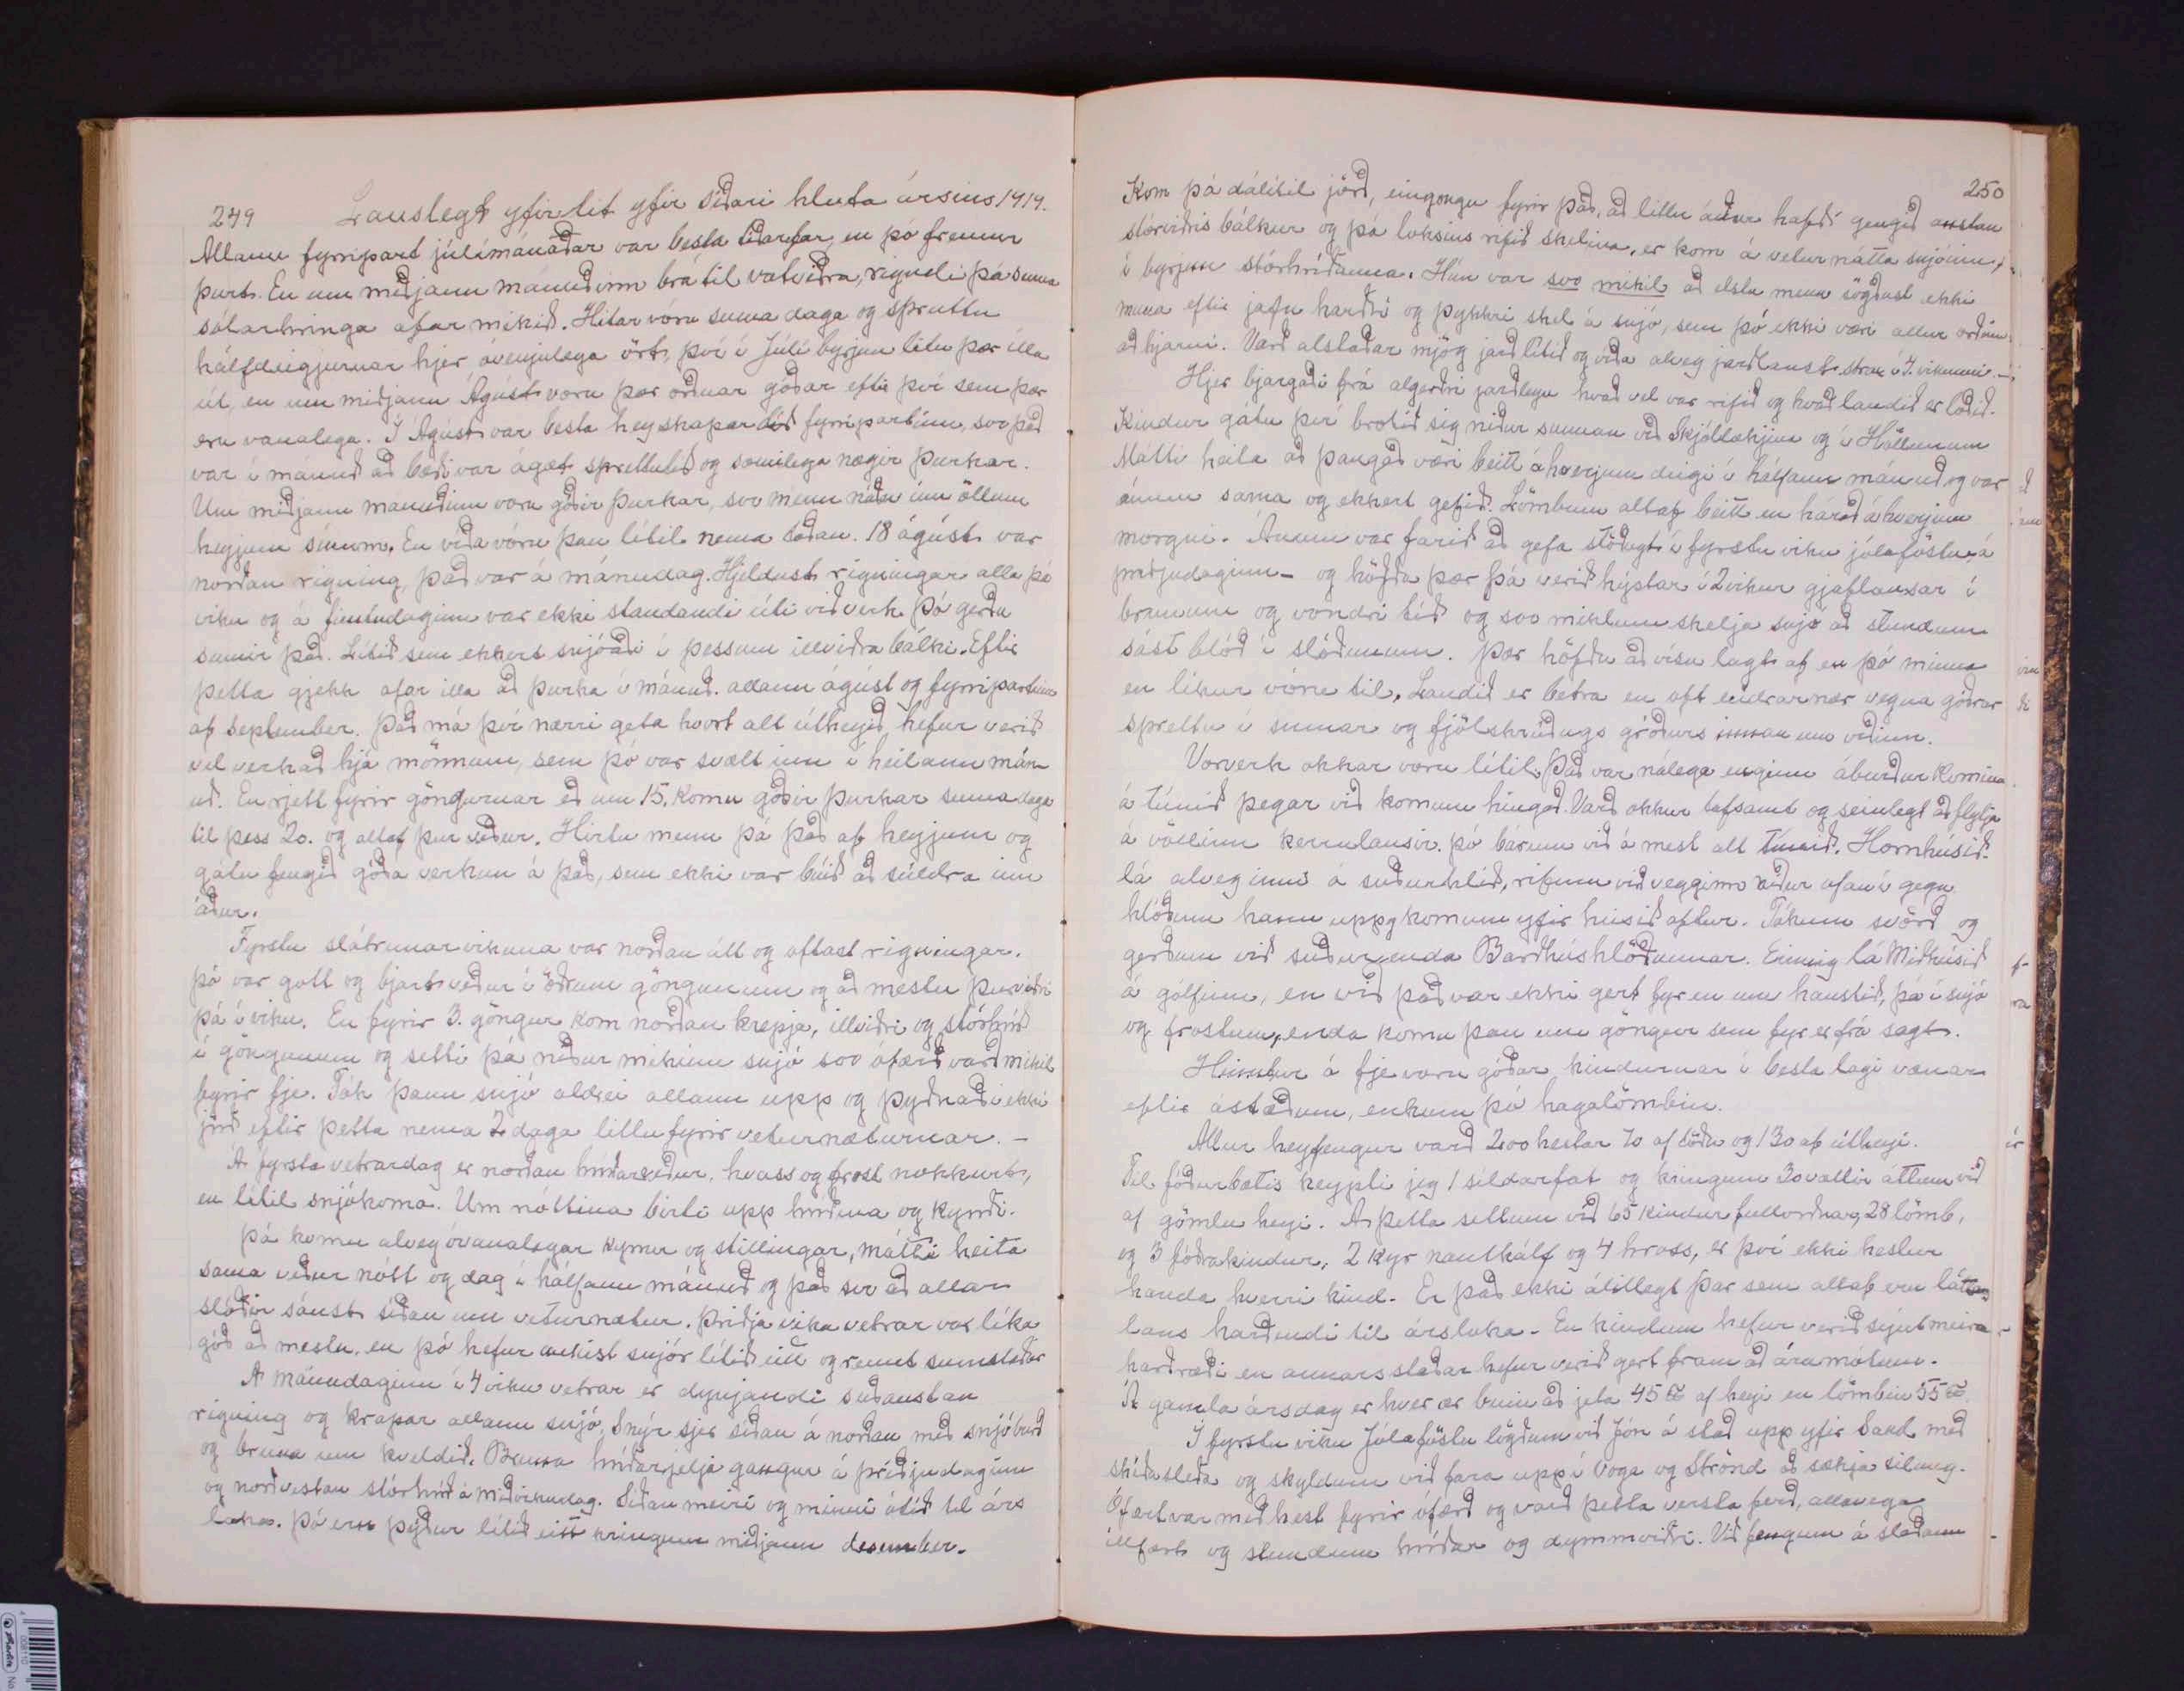 249 Lauslegt yfirlit yfir síðari hluta ársins 1919.
Allann fyrripart júlímánaðar var besta tíðarfar, en þó fremur
þurt. En um miðjann mánuðinn brá til votviðra, rigndi þá suma
sólarhringa afar mikið. Hitar vóru suma daga og spruttu
hálfdeigjurnar hjer óvenjulega ört, því í Júlí byrjun litu þær illa
út, en um miðjann Ágúst voru þær orðnar góðar eftir því sem þær
eru vanalega. Í Ágúst var besta heyskapar tíð fyrripartinn, svo það
var í mánuð að bæði var ágæt sprettutíð og sæmilega nægir þurkar.
Um miðjann manuðinn voru góðir þurkar, svo menn náðu inn öllum
heyjum sínum. En víða vóru þau lítil nema taðan. 18 ágúst var
norðan rigning, það var á mánudag. Hjeldust rigningar alla þá
viku og á fimtudaginn var ekki standandi úti við verk. Þó gerðu
sumir það. Lítið sem ekkert snjóaði í þessum illviðra bálki. Eftir
þetta gjekk afar illa að þurka í mánuð. allann ágúst og fyrripartinn
af september. Það má því nærri geta hvort alt útheyið hefur verið
vel verkað hjá mönnum, sem þó var svælt inn í heilann mán
uð. En rjett fyrir göngurnar eð um 15. komu góðir þurkar suma daga
til þess 20. og altaf þur veður. Hirtu menn þá það af heyjum og
gátu fengið góða verkun á það, sem ekki var búið að súldra inn
áður.
Fyrstu slátrunar vikuna var norðan átt og oftast rigningar.
þó var gott og bjart veður í öðrum göngunum og að mestu þurviðri
þá í viku. En fyrir 3. göngur kom norðan krepja, illviðri og stórhríð
í göngunum og setti þá niður mikinn snjó svo ófærð varð mikil
fyrir fje. Tók þann snjó aldrei allann upp og þyðnaði ekki
jörð eftir þetta nema 2 daga litlu fyrir veturnæturnar. –
Á fyrsta vetrardag er norðan hríðarveður, hvass og frost nokkurt,
en lítil snjókoma. Um nóttina birti upp hríðina og kyrrði.
Þá komu alveg óvanalegar kyrrur og stillingar, mátti heita
sama veður nótt og dag í hálfann mánuð og það svo að allar
slóðir sáust síðan um veturnætur. Þriðja vika vetrar var líka
góð að mestu, en þó hefur aukist snjór lítið eitt og rennt sumstaðar
Á mánudaginn í 4 viku vetrar er dynjandi suðaustan
rigning og krapar allann snjó. Snýr sjer síðan á norðan með snjóburð
og bruna um kveldið. Bruna hríðarjelja gangur á þriðjudaginn
og norðvestan stórhríð á miðvikudag. Síðan meiri og minni ótíð til árs
loka. Þó eru þýður lítið eitt kringum miðjann desember.
250
Kom þá dálítil jörð, eingöngu fyrir það, að litlu áður hafði gengið austan
stórviðris bálkur og þá loksins rifið skelina, er kom á veturnátta snjóinn,
í byrjun stórhríðanna. Hún var svo mikil að elstu menn sögðust ekki
muna eftir jafn harðri og þykkri skel á snjó, sem þó ekki væri allur orðinn
að hjarni. Varð alstaðar mjög jarðlítið og víða alveg jarðlaust strax í 4. vikunni. –
Hjer bjargaði frá algerðri jarðleysu hvað vel var rifið og hvað landið er loðið.
Kindur gátu því brotið sig niður sunnan við Skjöldækjina og í Höllunum
Mátti heita að þangað væri beitt á hverjum degi í hálfann mánuð og var
ánum sama og ekkert gefið. Lömbum altaf beitt en hárað á hverjum
morgni. Ánum var farið að gefa stöðugt í fyrstu viku jólaföstu á
þriðjudaginn – og höfðu þær þá verið hýstar í 2 vikur gjaflausar í
brunum og vondri tíð og svo miklum skelja snjó að stundum
sást blóð í slóðunum. Þær höfðu að vísu lagt af en þó minna
en líkur vóru til. Landið er betra en oft endrarnær vegna góðrar
sprettu í sumar og fjölskrúðugs gróðurs innan um viðinn.
Vorverk okkar voru lítil. Það var nálega enginn áburður kominn
á túnið þegar við komum hingað. Varð okkur tafsamt og seinlegt að flytja
á völlinn kerrulausir. Þó bárum við á mest allt túnið. Hornhúsið
lá alveg inni á suðurhlið, rifum við vegginn niður ofan í gegn
hlóðum hann upp, komum yfir húsið aftur. Tókum svörð og
gerðum við suðurenda Barðhúshlöðunnar. Einnig lá Miðhúsið
á gólfinu, en við það var ekki gert fyr en um haustið, þá í snjó
og frostum, enda komu þau um göngur sem fyr er frá sagt.
Heimtur á fje voru góðar, kindurnar í besta lagi vænar
eftir ástæðum, enkum þó hagalömbin.
Allur heyfengur varð 200 hestar 70 af töðu og 130 af útheyi.
Til fóðurbætis keypti jeg 1 síldarfat og kringum 30 vættir áttum við
af gömlu heyi. Á þetta settum við 65 kindur fullorðnar, 28 lömb,
og 3 fóðrakindur, 2 kyr nautkálf og 4 hross, er því ekki hestur
handa hverri kind. Er það ekki álitlegt þar sem altaf eru láta
laus harðindi til ársloka. En kindum hefur verið sýnt meira
harðræði en annars staðar hefur verið gert fram að áramótum.
Á gamla ársdag er hver ær búin að jeta 45 ℔ af heyi en lömbin 55 ℔
Í fyrstu viku Jólaföstu lögðum við Jón á stað upp yfir Sand með
skíðasleða og skyldum við fara upp í Voga og Strönd að sækja silung.
Ófært var með hest fyrir ófærð og varð þetta versta ferð, allavega
illfært og stundum hríðar og dymmviðri. Við fengum á sleðann